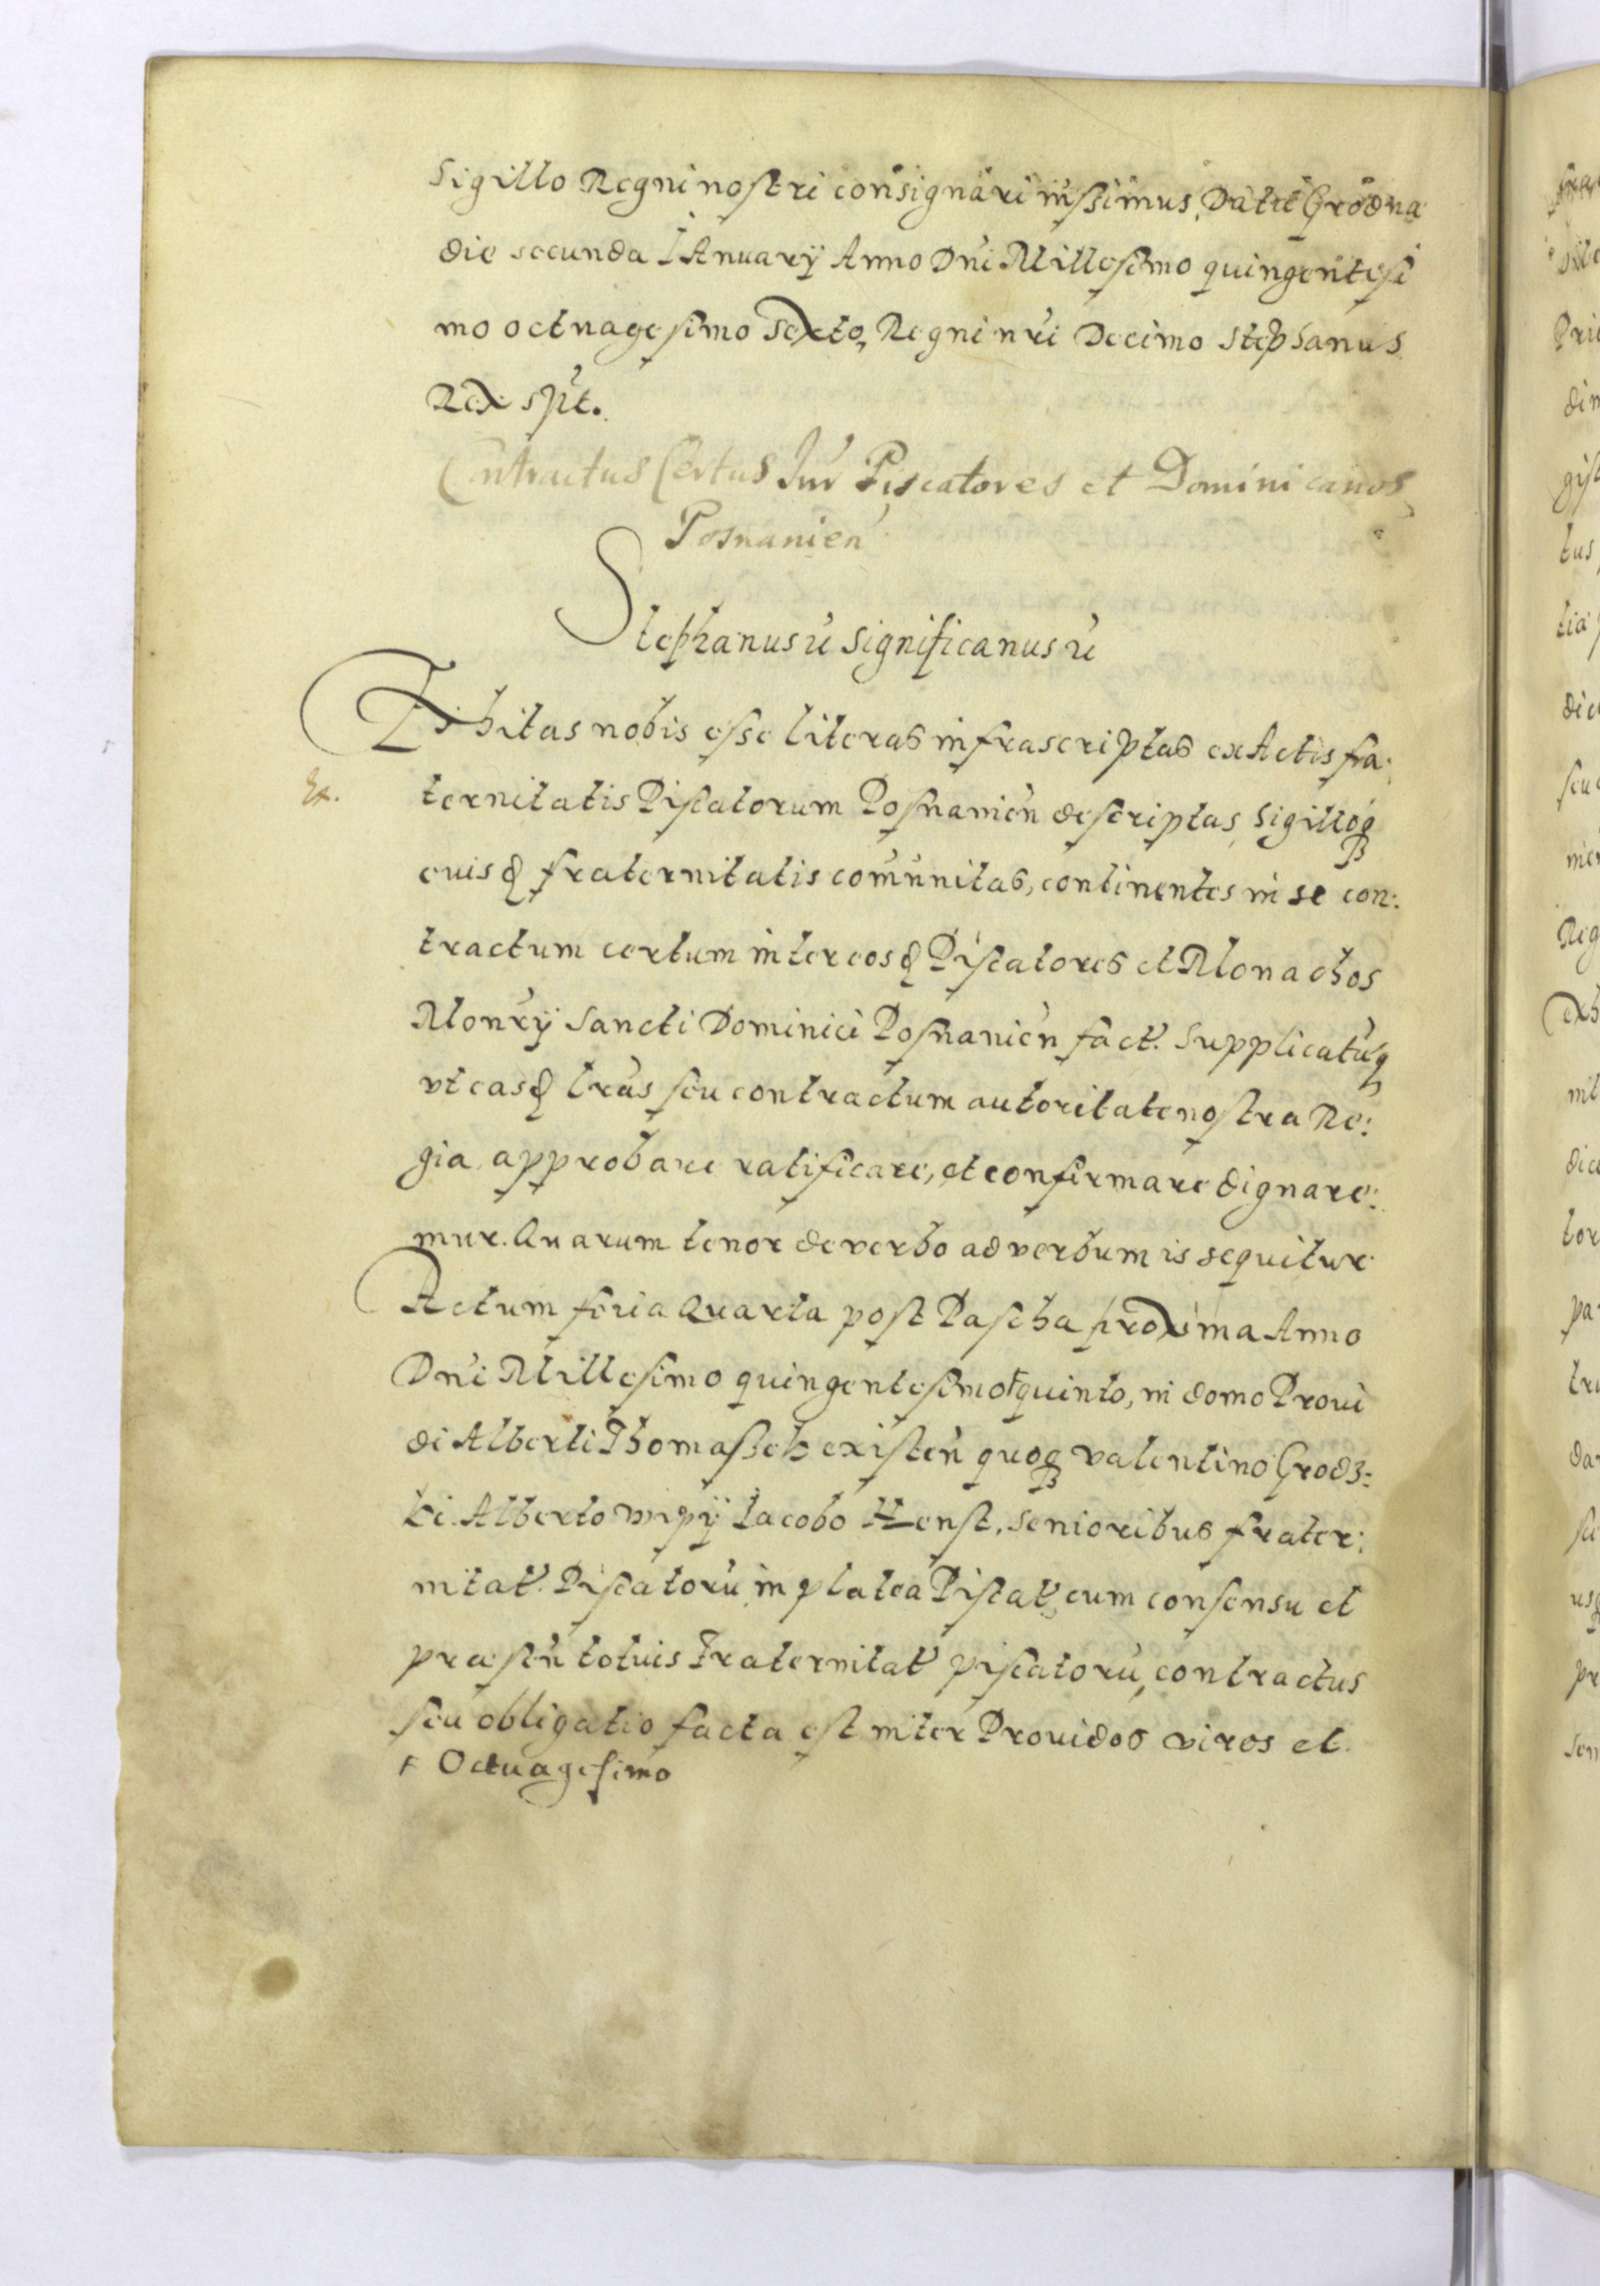 Sigillo Regni nostri consignari iussimus, Datt Grodna
die secunda IAnuarÿ Anno Dni Millesimo quingentesi
mo octuagesimo sexto, Regni nri Decimo Stephanus
Rex sszt.
Contractus Certus Intr Piscatores et Dominicanos
Posnanien
Stephanus rc significamus rc
Exhibitas nobis esse literas infrascriptas ex Actis fra:
Ex.
ternitatis Piscatorum Posnanien descriptas, Sigilloq
euisd fraternitatis comunitas, continentes in se con:
tractum certum inter eosd Piscatores et Monachos
Monrÿ Sancti Dominici Posnanien fact. Supplicatuq
vt easd lras seu contractum autoritate nostra Re:
gia approbare ratificare, et confirmare dignare:
mur. Quarum tenor de verbo ad verbum is sequitur
Actum feria Quarta post Pascha proxima Anno
Dni Millesimo quingentesimo † quinto, in domo Proui
di Alberti Thomassek existen quoq valentino Grodz:
ki Alberto Iacobo senioribus frater:
nitat. Piscatoru in platea Piscat, cum consensu et
præsen totuis Fraternitat piscatoru, contractus
seu obligatio facta est inter Prouidos viros et
† Octuagesimo